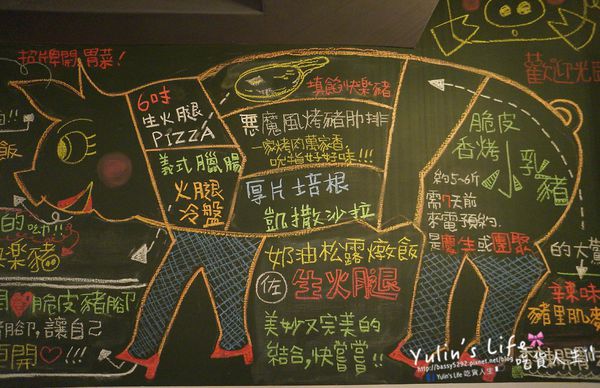 招牌開胃菜!
歡迎光
6吋
生火腿
PIZZA
義式臘腸
火腿
冷盤
填餡快樂豬
惡魔風烤豬肋排
一家烤肉萬家香
吃指好好味!!!
厚片培根
凱撒沙拉
脆皮
香烤
乳豬
約5~6斤
需7天前
來電預約
是慶生或團聚
的大
辣味
豬里肌
奶油松露燉飯
佐
生火腿
美妙又完美的
結合,快嘗嘗!!
飯
樂豬
脆皮豬腳
腳,讓自己
開♡!!!
Yulin's Life
吃貨人生!
http://bassy5292.pixnet.net/blog
Yulin's Life 吃貨人生